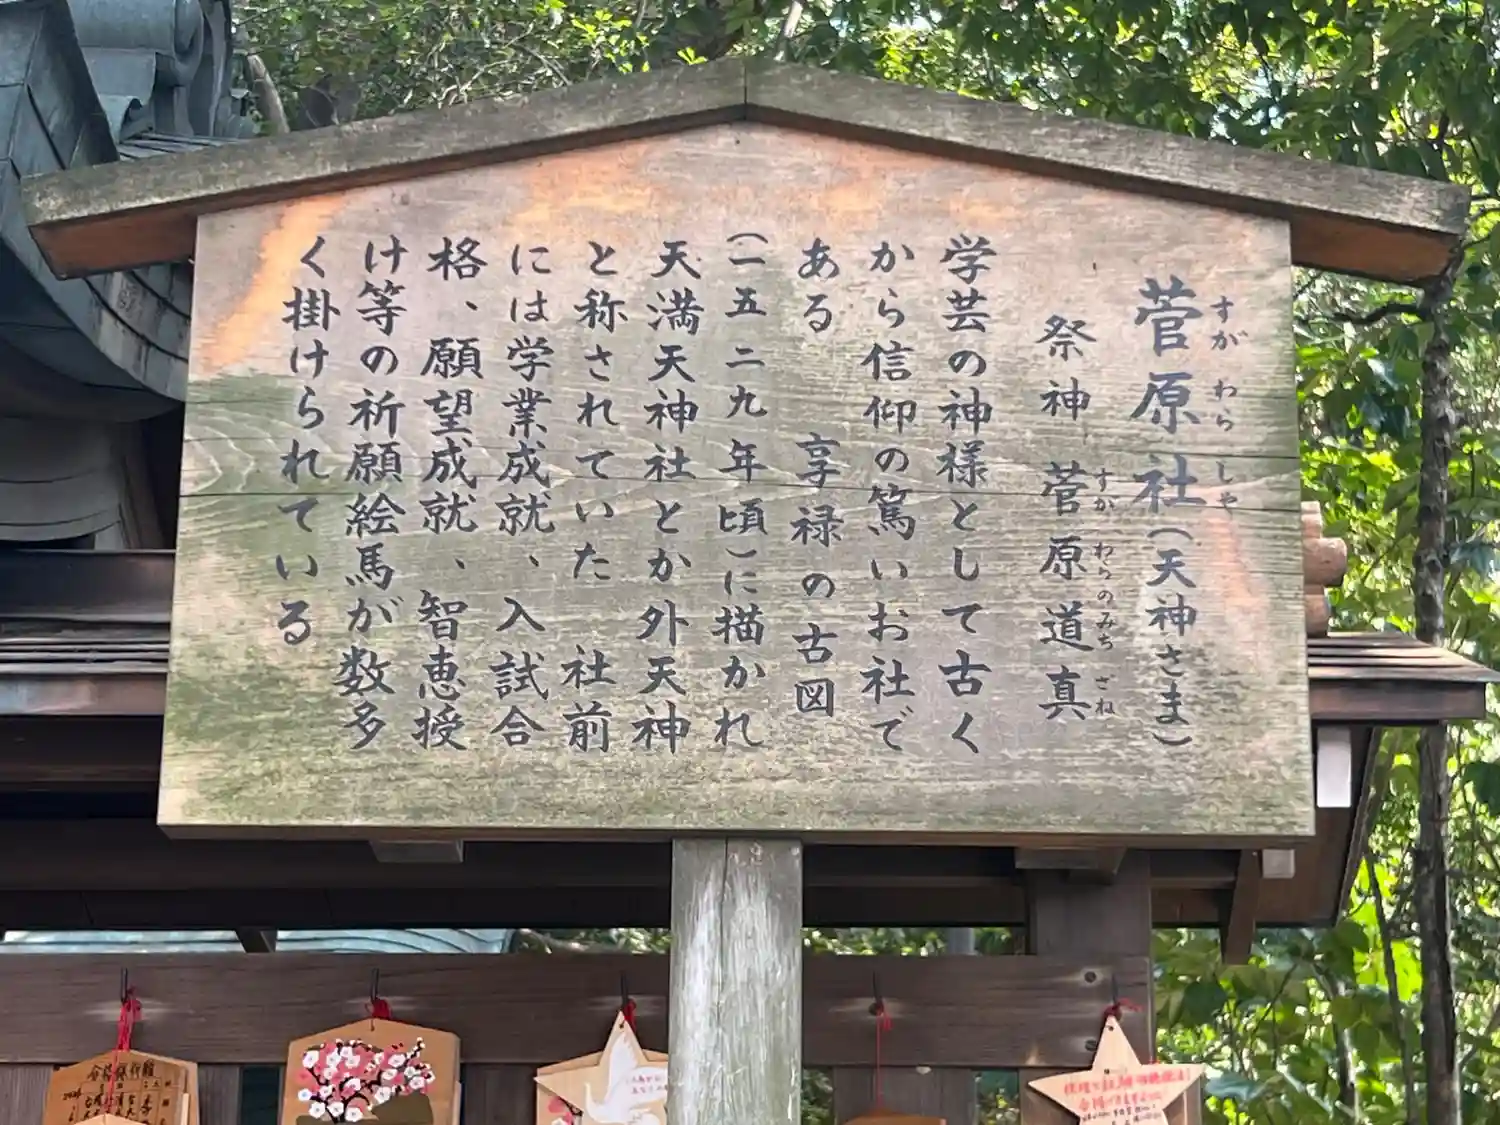 菅原社(天神さま)
すがわらしや
祭神 菅原道真
すがわらのみちざね
学芸の神様として古く
から信仰の篤いお社で
ある 享禄の古図
(一五二九年頃)に描かれ
天満天神社とか外天神
と称されていた 社前
には学業成就、入試合
格、願望成就、智恵授
け等の祈願絵馬が数多
く掛けられている